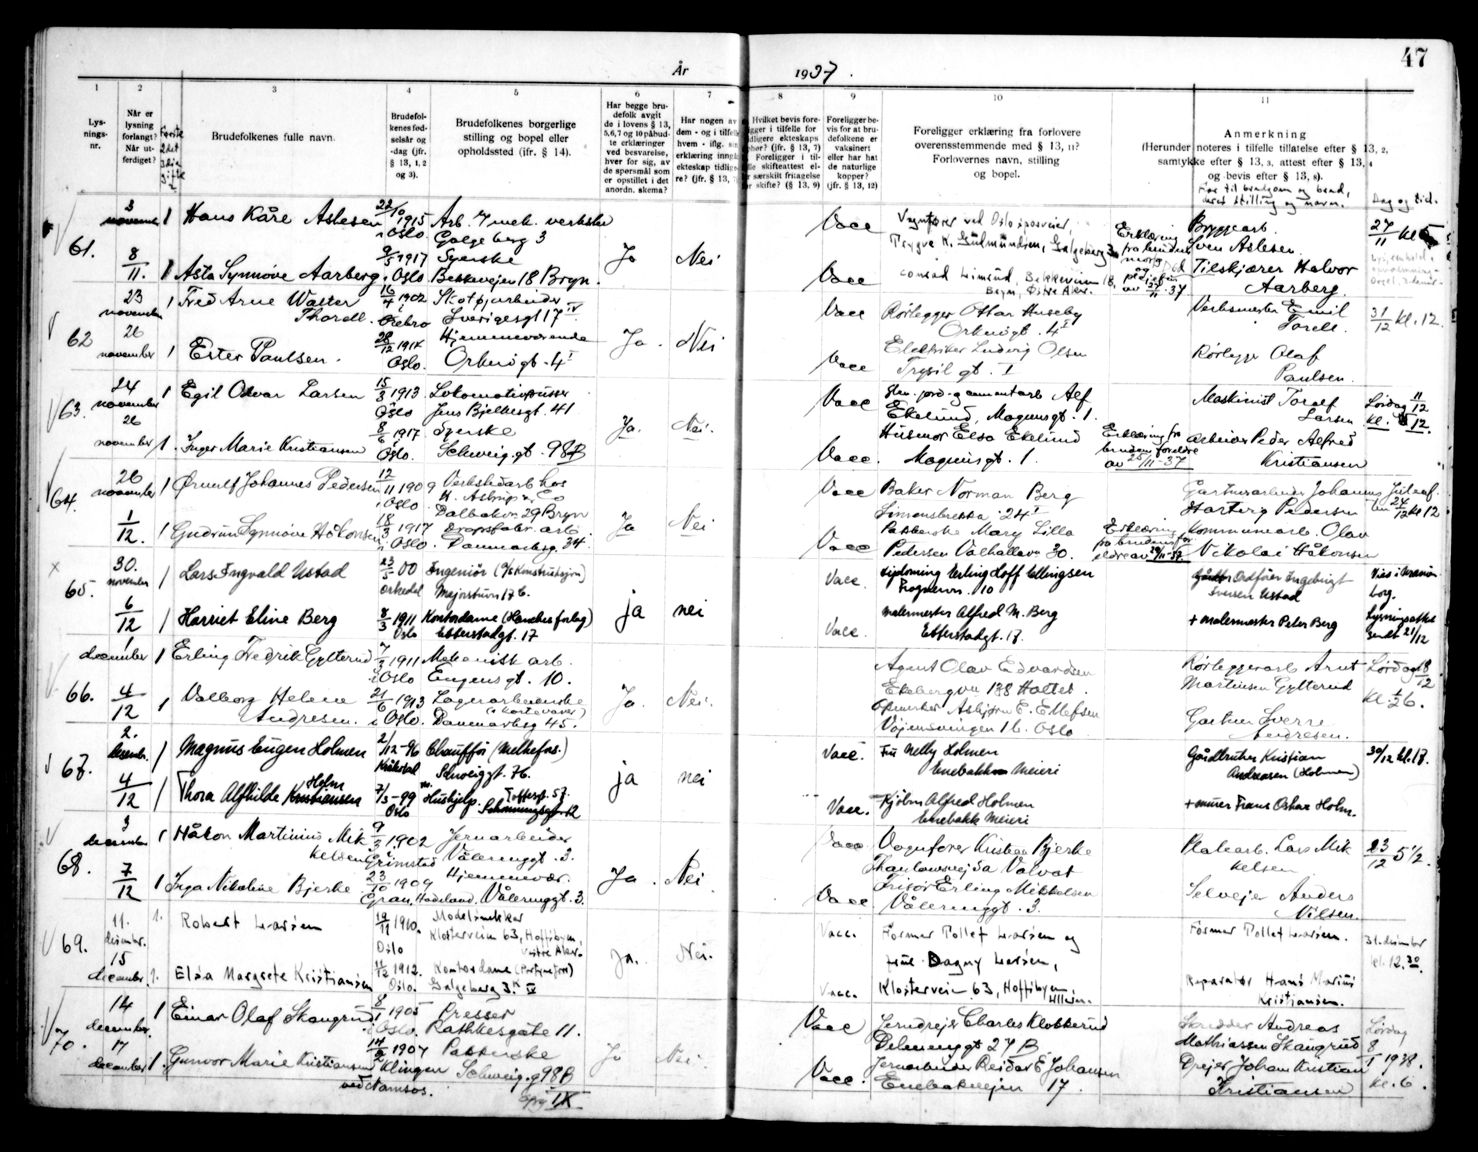 47
År 1937.
1 2 3 4 5 6 7 8 9 10 11
Lys-
nings-
nr.
Når er
lysning
forlangt?
Når ut-
ferdiget?
Brudefolkenes fulle navn.
Brudefol-
kenes fød-
selsår og
-dag (jfr.
§ 13, 1, 2
og 3).
Brudefolkenes borgerlige
stilling og bopel eller
opholdssted (ifr. § 14).
Har begge bru-
defolk avgit
de i lovens § 13,
5,6,7 og 10 påbud-
te erklæringer
ved besvarelse,
hver for sig, av
de spørsmål som
er opstillet i det
anordn. skema?
Har nogen av
dem - og i tilfelle
hvem - iflg. sin
erklæring inngått
ekteskap tidlige-
re? (jfr. § 13,
Hvilket bevis fore-
ligger i tilfelle for
tidligere ekteskaps
ophør? (jfr. § 13, 7)
Foreligger i til-
felle skifteattest el-
ler særskilt fritagelse
for skifte? (§ 13, 9)
Foreligger be-
vis for at bru-
defolkene er
vaksinert
eller har hat
de naturlige
kopper?
(jfr. § 13, 12)
Foreligger erklæring fra forlovere
overensstemmende med § 13, 11?
Forlovernes navn, stilling
og bopel.
Anmerkning
(Herunder noteres i tilfelle tillatelse efter § 13, 2,
samtykke efter § 13, 3, attest efter § 13, 4
og bevis efter § 13, 8).
Far til brudgom og brud,
deres stilling og navn.
Dag og tid.
61.
3
november 1 Hans Kåre Aslesen 22/10 1915 i Oslo. Arb. mek. verksted
Galgeberg 3
8/11. 1 Asta Synnøve Aarberg 9/5 1917 i Oslo Syerske
Bekkeveien 18 Bryn.
Ja Nei
Vacc Vognfører ved Oslo sporveier,
Trygve K. Gulmundsen, Galgeberg 3
Vacc Conrad Limsud, Bekkeveien 18,
Bryn, Østre Aker.
Bryggearb.
Sven Aslesen
Tilskjærer Halvor
Aarberg.
27/11 kl
62
23
november 1 Fred Arne Walter
Thorell. 16/4 1902 i Örebro
Sverigesgt 17 IV
26
november 1 Ester Paulsen. 28/12 1914 Oslo. Hjemmeværende
Orknøgt. 4 I
Ja. Nei
Vacc Rørlegger Ottar Huseby
Orknøgt. 4 I
Vacc Elektriker Ludvig Olsen
Trysil gt. 1
Verksmester Emil
Torell.
Rørlegger Olaf
Paulsen.
31/12 kl. 12.
63.
24
november 1 Egil Oskar Larsen 15/3 1913 Oslo Lokomotivpusser
Jens Bjelkesgt. 41
26
november 1. Inger Marie Kristiansen 8/6 1917 Oslo. Syerske
Schweig. gt. 98B
Ja. Nei.
Vacc jord- og cementarb. Alf
Ekelund, Magnusgt. 1.
Vacc. Husmor Elsa Ekelund
Magnusgt. 1.
Erklæring fra
brudens foreldre
av 25/11-37
Maskinist Toralf
Larsen
Arbeider Peder Alfred
Kristiansen
Lørdag 11/12
kl. 12.
64.
26
november 1 Ørnulf Johannes Pedersen 12/11 1909 i Oslo. Verkstedarb. hos
Dalbakv. 29 Bryn
1/12. 1 Gudrun Synnøve Håkonsen 18/3 1917 i Oslo.
Danmarksg. 34.
Ja Nei
Vacc Baker Norman Berg
Simensbrekka 24 I
Vacc Pakkerske Mary Lilla
Pedersen Valhallav. 30.
Gartnerarbeider Johannes
Hartvig Pedersen
Kommunearb. Olav
Nikolai Håkonsen
Juleaf.
24/12 kl 12
65.
30.
november 1 Lars Ingvald Ustad 23/5 00 Orkedal Ingeniør
Majorstuvn 17 b.
6/12 1 Harriet Eline Berg 8/3 1911 Oslo Kontordame
Etterstadgt. 17
ja nei
Vacc. Erling Loff Ellingsen
Prognesv. 10
Vacc. malermester Alfred M. Berg
Etterstadgt. 17.
Ordfører Ingebrigt
Iversen Ustad
+ malermester Peter Berg
Vies i Uranien-
borg.
Lysningsattest
sendt 21/12
66.
december 1 Erling Fredrik Gytterud 7/3 1911 i Oslo Mekanisk arb.
Eugens gt. 10.
4/12 1 Valborg Helene
Andresen. 21/6 1913 i Oslo. Lagerarbeiderske
Danmarksg 45.
Ja. Nei.
Agent Olav Edvardsen
Ekebergvn 188 Holtet.
Asbjørn E. Ellefsen
Vøienvolveien 16. Oslo
Rørleggerarb. Arnt
Martinsen Gytterud
Gartner Sverre
Andresen.
Lørdag 18/12
kl. ½6.
67.
2.
desembr. 1 Magnus Eugen Holmen 2/12-96 Kråkstad Chauffør (Melkefors.)
Schweiggt. 76.
4/12 1 Thora Alfhilde Kristiansen Holm 7/3-99 Oslo Hushjelp.
ja nei
Vacc. Fru Nelly Holmen
Enebakk Meieri
Vacc. Fjøsm. Alfred Holmen
Enebakk Meieri
Gårdbruker Kristian
Andreasen (Holmen)
+ murer Frans Oskar Holm.
30/12 kl. 17.
68.
3
december 1 Håkon Martinius Mik
kelsen 9/3 1902 Grimstad Jernarbeider
Vålerenggt. 3.
7/12 1 Inga Nikoline Bjerke 23/10 1909 Gran, Hadeland. Hjemmevær.
Vålerenggt. 3.
Ja. Nei.
Vacc Vognfører Kristian Bjerke
Vacc Frisør Erling Mikkelsen
Vålerenggt. 3.
Platearb. Lars Mik
kelsen
Selveier Anders
Nilsen.
23/12 5½.
69.
11.
desembr. 1. Robert Larsen 19/11 1910. Oslo Modelsnekker
Klosterveien 63, Høffsbyen
Vestre Aker.
15
december. 1. Elsa Margrete Kristiansen 1912. Oslo. Kontordame
Galgeberg 3 IV
Ja. Nei.
Vacc. Former Tollef Larsen og
frue Dagny Larsen,
Vacc. Klosterveien 63, Høffsbyen,
Ullern.
Former Tollef Larsen.
Reparatør Hans Marius
Kristiansen.
31. desember
kl. 12.30
70.
14
december. 1 Einar Olaf Skaugrud 8/1 1905 i Oslo. Presser
Rathkesgate 11.
17
december 1. Gunvor Marie Kristiansen 14/2 1907 Klingen
ved Namsos. Pakkerske
Schweig.g 98B
opg IX
Ja Nei.
Vacc Jerndreier Charles Klokkerud
Delenenggt 27B
Vacc. Jernarbeider Reidar E Johansen
Enebakkveien 17.
Skredder Andreas
Mathiassen Skaugrud
Dreier Johan Kristian
Kristiansen
Lørdag
8/1 1938.
kl. 6.